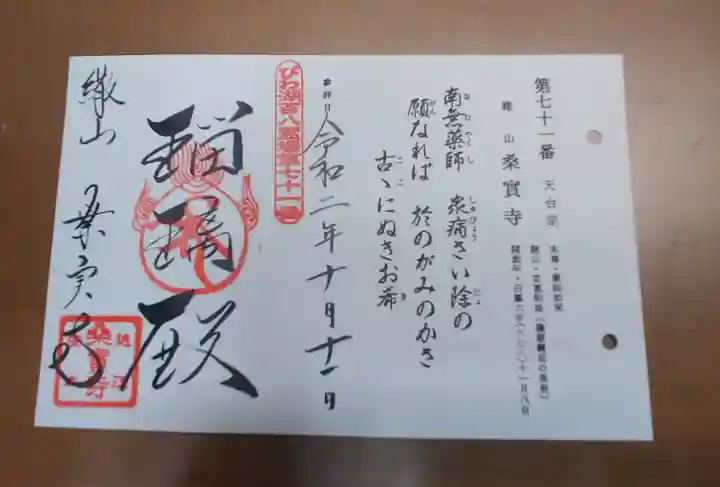 第七十一番 天台宗
繖山 桑實寺
本尊・薬師如来
開創年・白鳳六年(六七八)十一月八日
南無薬師 衆病さい除の
願なれば 於のがみのかさ
古ゝにぬぎお希
参拝日 令和二年十月十一日
びわ湖百八霊場第七十一番
瑠璃殿
繖山 桑実寺
桑實寺